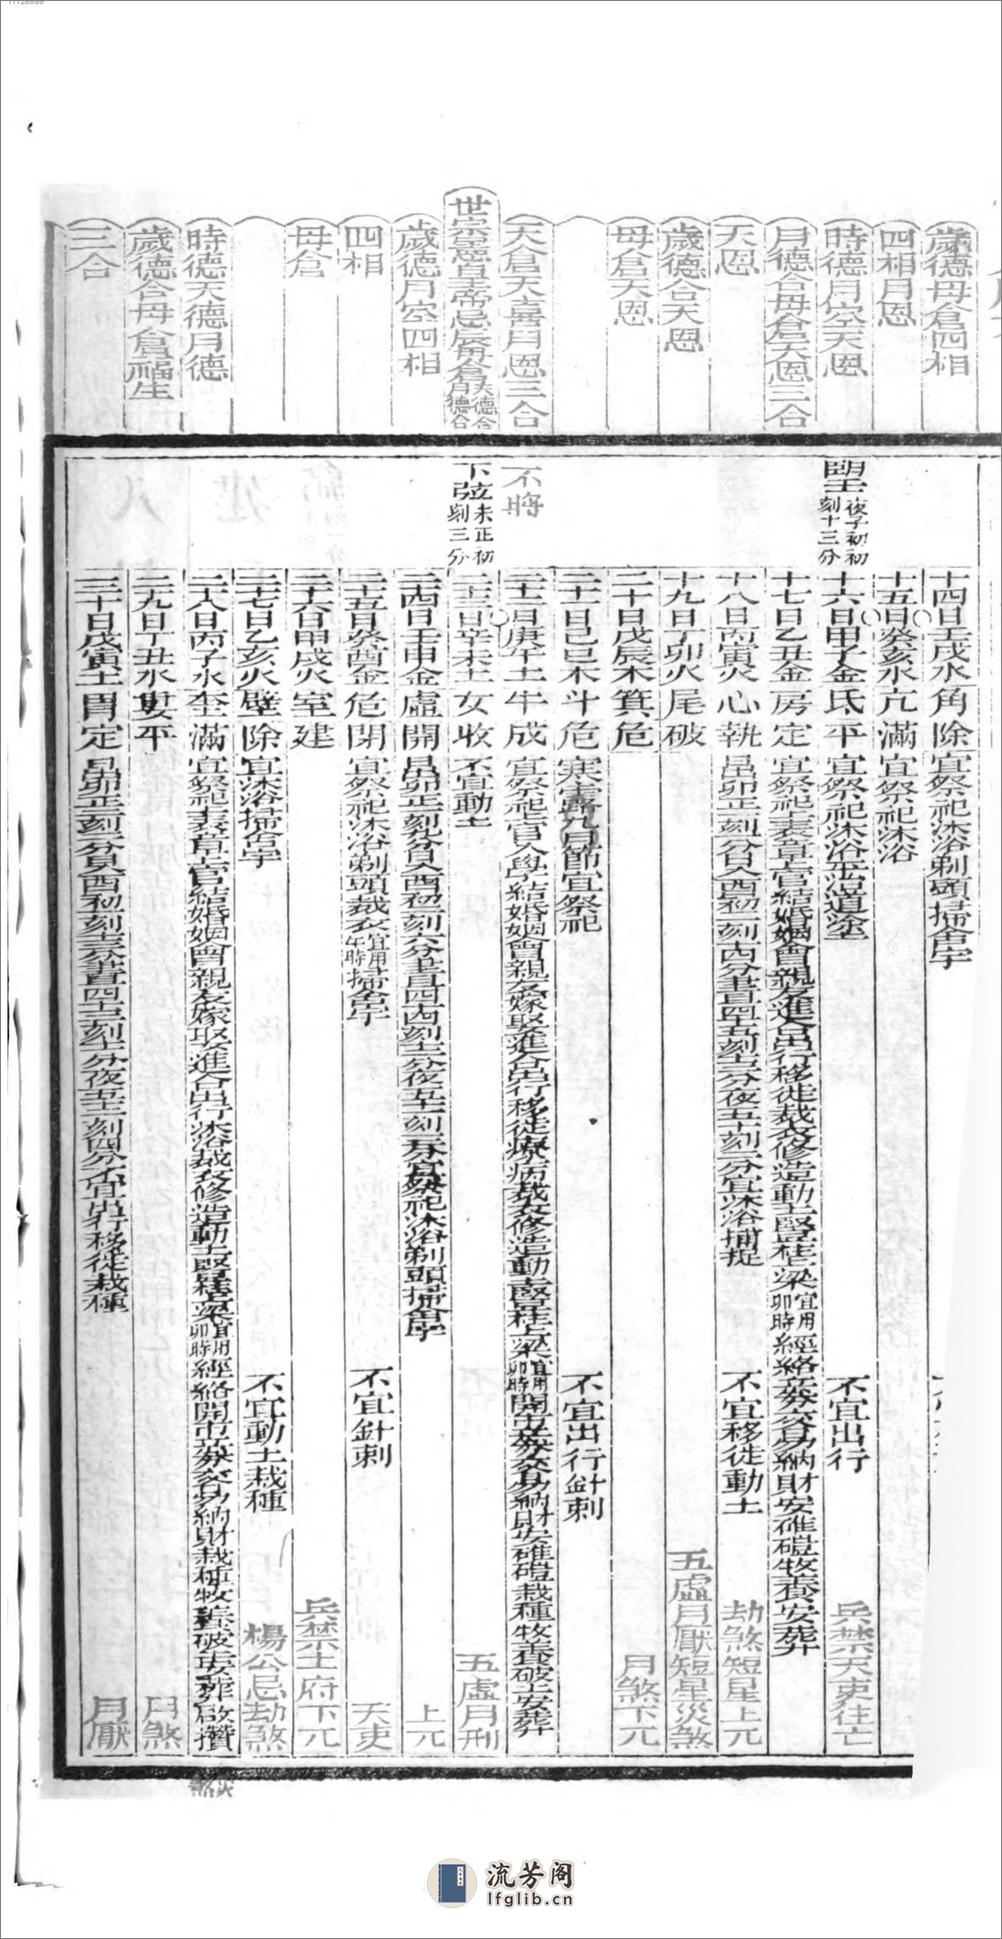 歲德母倉四相
四相月恩
時德月空天恩
月德合母倉天恩三合
天恩
歲德合天恩
母倉天恩
天倉天喜月恩三合
世宗憲皇帝忌辰母倉天德合月德合
歲德月空四相
四相
母倉
時德天德月德
歲德合母倉福生
三合
望夜子初初刻十三分
不將
下弦未正初刻三分
十四日壬戌水角除宜祭祀沐浴剃頭掃舍宇
十五日癸亥水亢滿宜祭祀沐浴
十六日甲子金氐平宜祭祀沐浴平治道塗 不宜出行 兵禁天吏往亡
十七日乙丑金房定宜祭祀上表章上官結婚姻會親友進人口出行移徙裁衣修造動土豎柱上梁宜用卯時經絡立券交易納財安碓磑牧養安葬
十八日丙寅火心執日出卯正一刻 分日入酉初二刻 分晝四十五刻 分夜五十刻 分宜沐浴捕捉 不宜移徙動土 劫煞短星上元
十九日丁卯火尾破 五虛月厭短星災煞
二十日戊辰木箕危 月煞下元
二十一日己巳木斗危寒露九月節宜祭祀 不宜出行針刺
二十二日庚午土牛成宜祭祀上官入學結婚姻會親友嫁娶進人口出行移徙療病裁衣修造動土豎柱上梁宜用卯時開市立券交易納財安碓磑栽種牧養破土安葬
二十三日辛未土女收不宜動土 五虛月刑
二十四日壬申金虛開日出卯正 刻 分日入酉初 刻 分晝四十 刻 分夜五十 刻 分宜祭祀沐浴剃頭掃舍宇 上元
二十五日癸酉金危閉宜祭祀沐浴剃頭裁衣宜用午時掃舍宇 不宜針刺 天吏
二十六日甲戌火室建 兵禁土府下元
二十七日乙亥火壁除宜沐浴掃舍宇 不宜動土栽種 楊公忌劫煞
二十八日丙子水奎滿宜祭祀上表章上官結婚姻會親友嫁娶進人口出行沐浴裁衣修造動土豎柱上梁宜用卯時經絡開市立券交易納財栽種牧養破土安葬啟攢 災煞
二十九日丁丑水婁平 月煞
三十日戊寅土胃定日出卯正 刻 分日入酉初 刻 分晝四十 刻 分夜五十 刻四分不宜出行移徙栽種 月厭
流芳阁
lfglib.cn